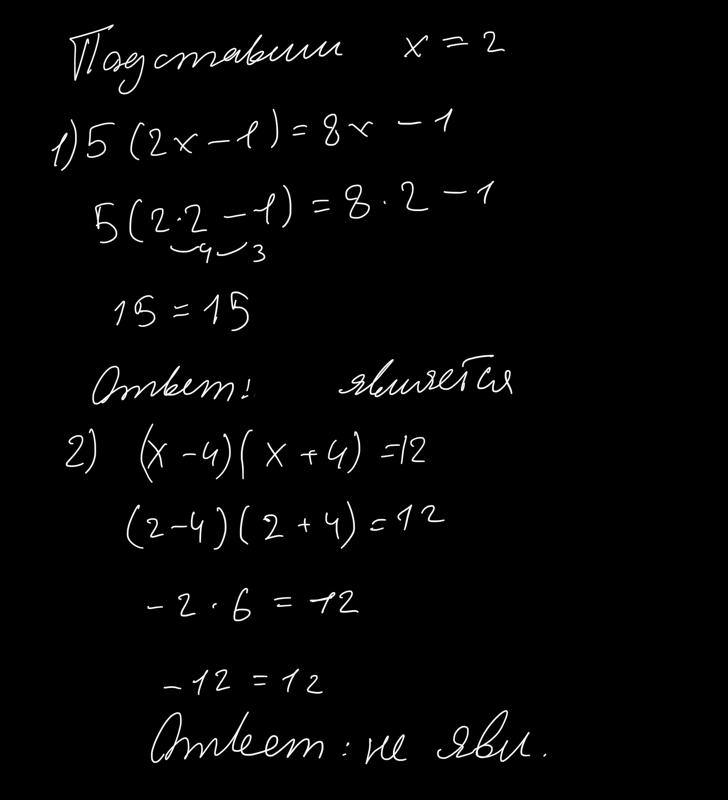 Подставим x = 2
1) 5 (2x - 1) = 8x - 1
5 (2·2 - 1) = 8 · 2 - 1
4 3
15 = 15
Ответ: является
2) (x - 4)(x + 4) = 12
(2 - 4)(2 + 4) = 12
- 2 · 6 = 12
- 12 = 12
Ответ: не явл.